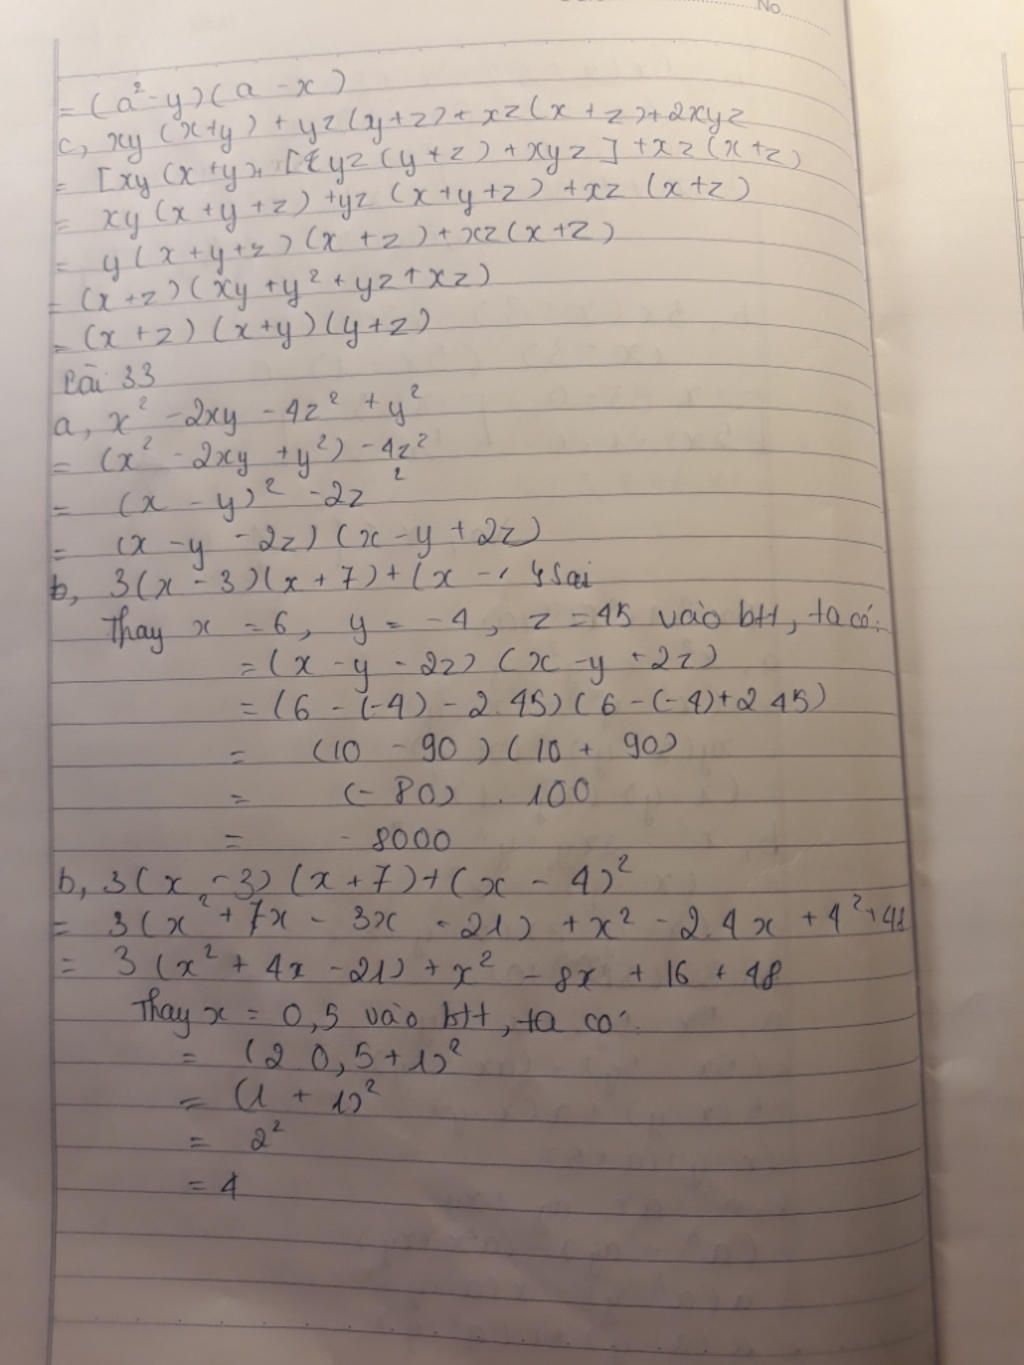 No
= (a² - y)(a - x)
c, xy (x+y) + yz(y+z) + xz(x+z)+2xyz
= [xy(x+y), [yz(y+z) + xyz] + xz(x+z)
= xy(x+y+z) + yz(x+y+z) + xz (x+z)
= y(x+y+z)(x+z)+xz(x+z)
= (x+z)(xy+y²+yz+xz)
= (x+z)(x+y)(y+z)
Bài 33
a, x² - 2xy - 4z² + y²
= (x² - 2xy + y²) - 4z²
= (x - y)² - 2z²
= (x - y - 2z)(x - y + 2z)
b, 3(x - 3)(x + 7)+(x - Sai
Thay x = 6, y = -4, z = 45 vào btt, ta có:
= (x - y - 2z)(x - y + 2z)
= (6 - (-4) - 2.45)(6 - (-4)+2 45)
= (10 - 90)(10 + 90)
= (-80) . 100
= - 8000
b, 3(x - 3)(x + 7)+(x - 4)²
= 3(x² + 7x - 3x - 21) + x² - 2.4x + 4² + 48
= 3(x² + 4x - 21) + x² - 8x + 16 + 48
Thay x = 0,5 vào btt, ta có:
= (2 0,5 + 1)²
= (1 + 1)²
= 2²
= 4